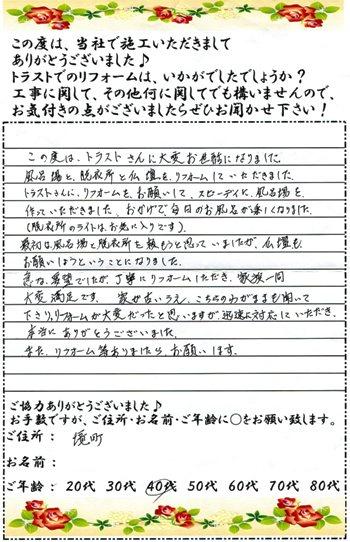 この度は、当社で施工いただきまして
ありがとうございました♪
トラストでのリフォームは、いかがでしたでしょうか？
工事に関して、その他何に関してでも構いませんので、
お気付きの点がございましたらぜひお聞かせ下さい！
この度は、トラストさんに大変お世話になりました。
風呂場と、脱衣所と仏壇を、リフォームしていただきました。
トラストさんに、リフォームをお願いして、スピーディに、風呂場を
作っていただきました。おかげで毎日のお風呂が楽しくなりました。
(脱衣所のライトは、お気に入りです)。
最初は風呂場と脱衣所を頼もうと思っていましたが、仏壇も
お願いしようということになりました。
急な希望でしたが、丁寧にリフォームいただき、家族一同
大変満足です。 家が古いうえ、こちらのわがままも聞いて
下さり、リフォームが大変だったと思いますが、迅速に対応していただき、
本当にありがとうございました。
また、リフォーム等ありましたら、お願いします。
ご協力ありがとうございました♪
お手数ですが、ご住所・お名前・ご年齢に〇をお願い致します。
ご住所： 境町
お名前：
ご年齢： 20代 30代 40代 50代 60代 70代 80代